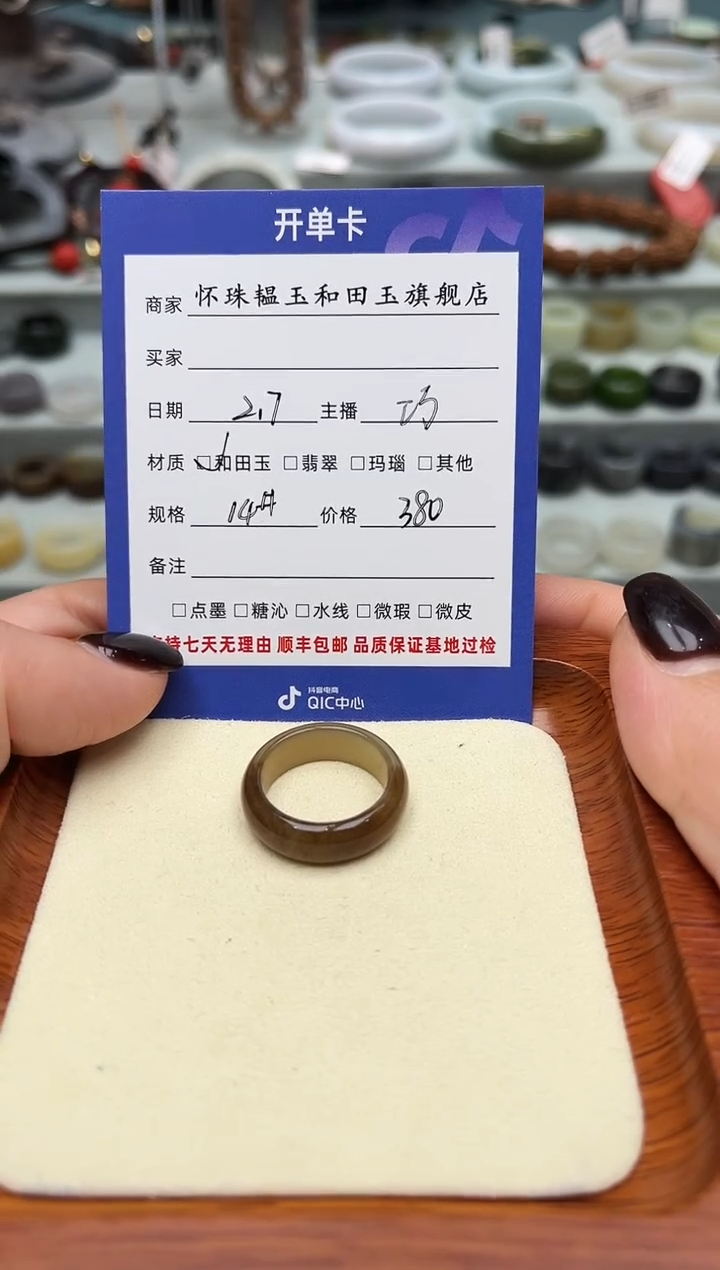 开单卡
商家 怀珠韫玉和田玉旗舰店
买家
日期 2.7 主播 巧
材质 ☑和田玉 □翡翠 □玛瑙 □其他
规格 14# 价格 380
备注
□点墨 □糖沁 □水线 □微瑕 □微皮
持七天无理由 顺丰包邮 品质保证基地过检
抖音电商
QIC中心